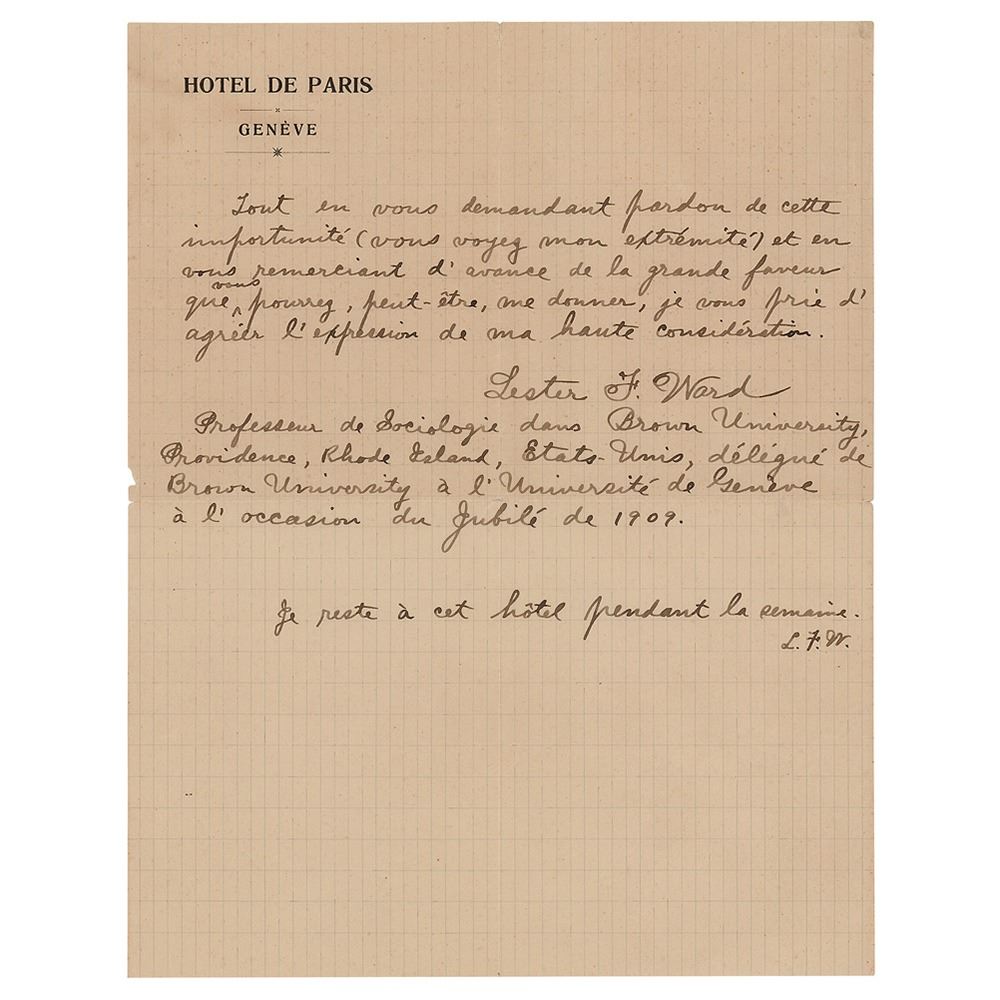 HOTEL DE PARIS
GENÈVE
Tout en vous demandant pardon de cette
importunité (vous voyez mon extrémité) et en
vous remerciant d'avance de la grande faveur
que vous pourrez, peut-être, me donner, je vous prie d'
agréér l'expression de ma haute considération.
Lester F. Ward
Professeur de Sociologie dans Brown University,
Providence, Rhode Island, Etats-Unis, délégué de
Brown University à l'Université de Genève
à l'occasion du Jubilé de 1909.
Je reste à cet hôtel pendant la semaine.
L. F. W.